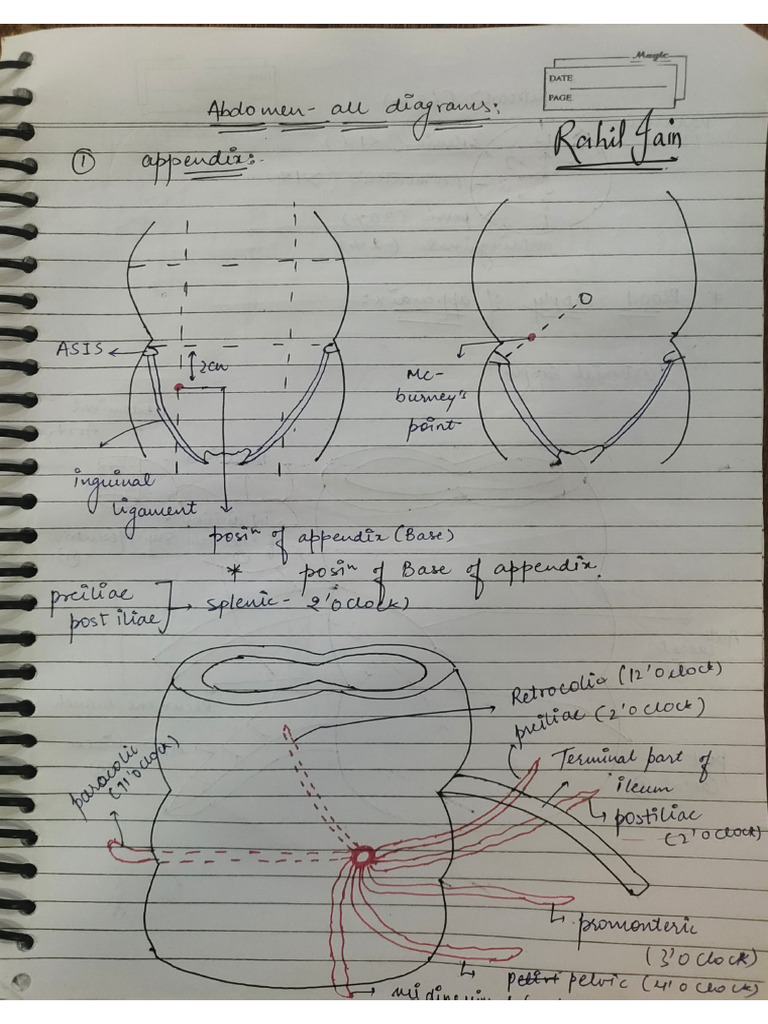 Magic
DATE
PAGE
Abdomen - all diagrams:
Rahil Jain
① appendix:-
ASIS
2cm
inguinal
ligament
Mc-
burney's
point
posiⁿ of appendix (Base)
* posiⁿ of Base of appendix.
preiliac
postiliac
→ splenic - 2'O clock)
Retrocolic (12'O clock)
preiliac (2'O clock)
paracolic
(11'O clock)
Terminal part of
ileum
postiliac
(2'O clock)
promonteric
(3'O clock)
pelvic (4'O clock)